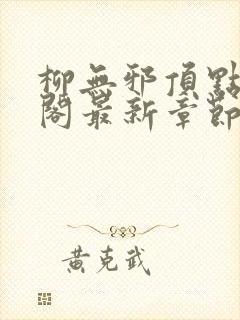 柳無邪頂點
閣最新章節
黃克武